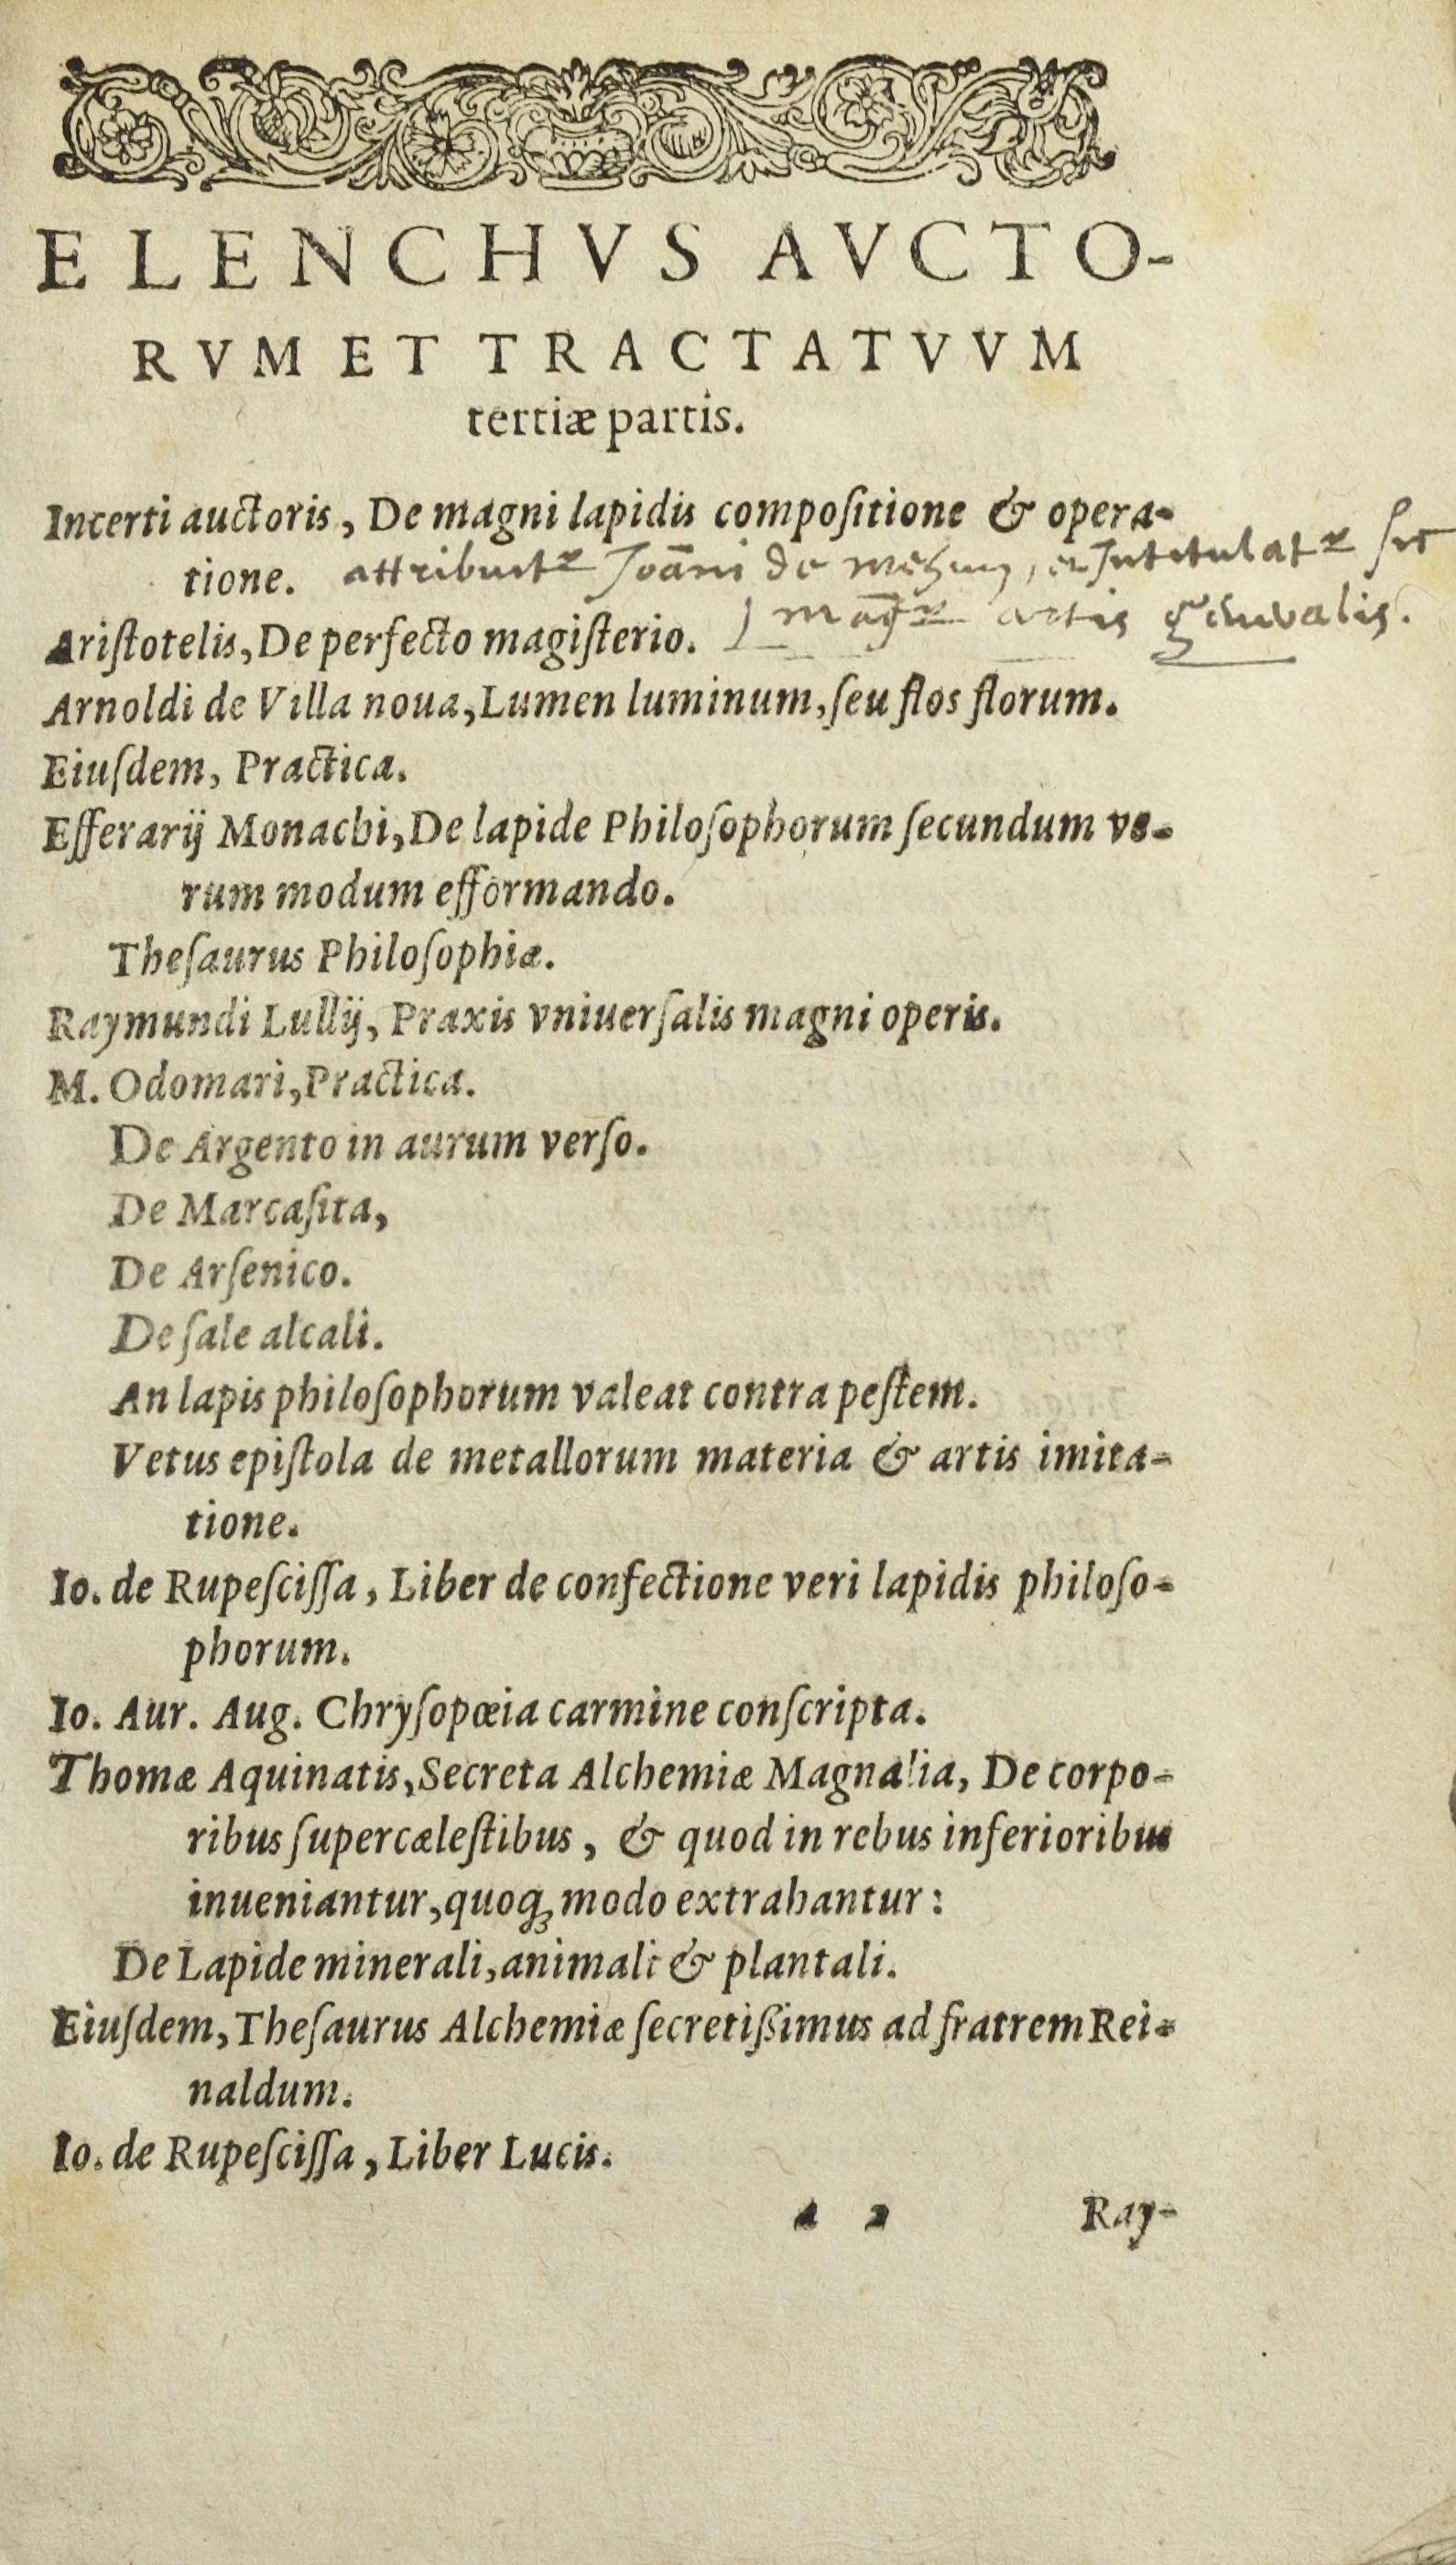 ELENCHVS AVCTO-
RVM ET TRACTATVVM
tertiæ partis.
Incerti auctoris, De magni lapidis compoſitione & opera-
tione. attribuitr Joāni de mehun, et Intitulatr ſic
artis
Ariſtotelis, De perfecto magiſterio.
Arnoldi de Villa noua, Lumen luminum, ſeu flos florum.
Eiuſdem, Practica.
Efferarij Monachi, De lapide Philoſophorum ſecundum ve-
rum modum efformando.
Theſaurus Philoſophiæ.
Raymundi Lullij, Praxis vniuerſalis magni operis.
M. Odomari, Practica.
De Argento in aurum verſo.
De Marcaſita,
De Arſenico.
De ſale alcali.
An lapis philoſophorum valeat contra peſtem.
Vetus epiſtola de metallorum materia & artis imita-
tione.
Io. de Rupeſciſſa, Liber de confectione veri lapidis philoſo-
phorum.
Io. Aur. Aug. Chryſopœia carmine conſcripta.
Thomæ Aquinatis, Secreta Alchemiæ Magnalia, De corpo-
ribus ſupercæleſtibus, & quod in rebus inferioribus
inueniantur, quoq; modo extrahantur:
De Lapide minerali, animali & plantali.
Eiuſdem, Theſaurus Alchemiæ ſecretißimus ad fratrem Rei-
naldum.
Io. de Rupeſciſſa, Liber Lucis.
a 2 Ray-